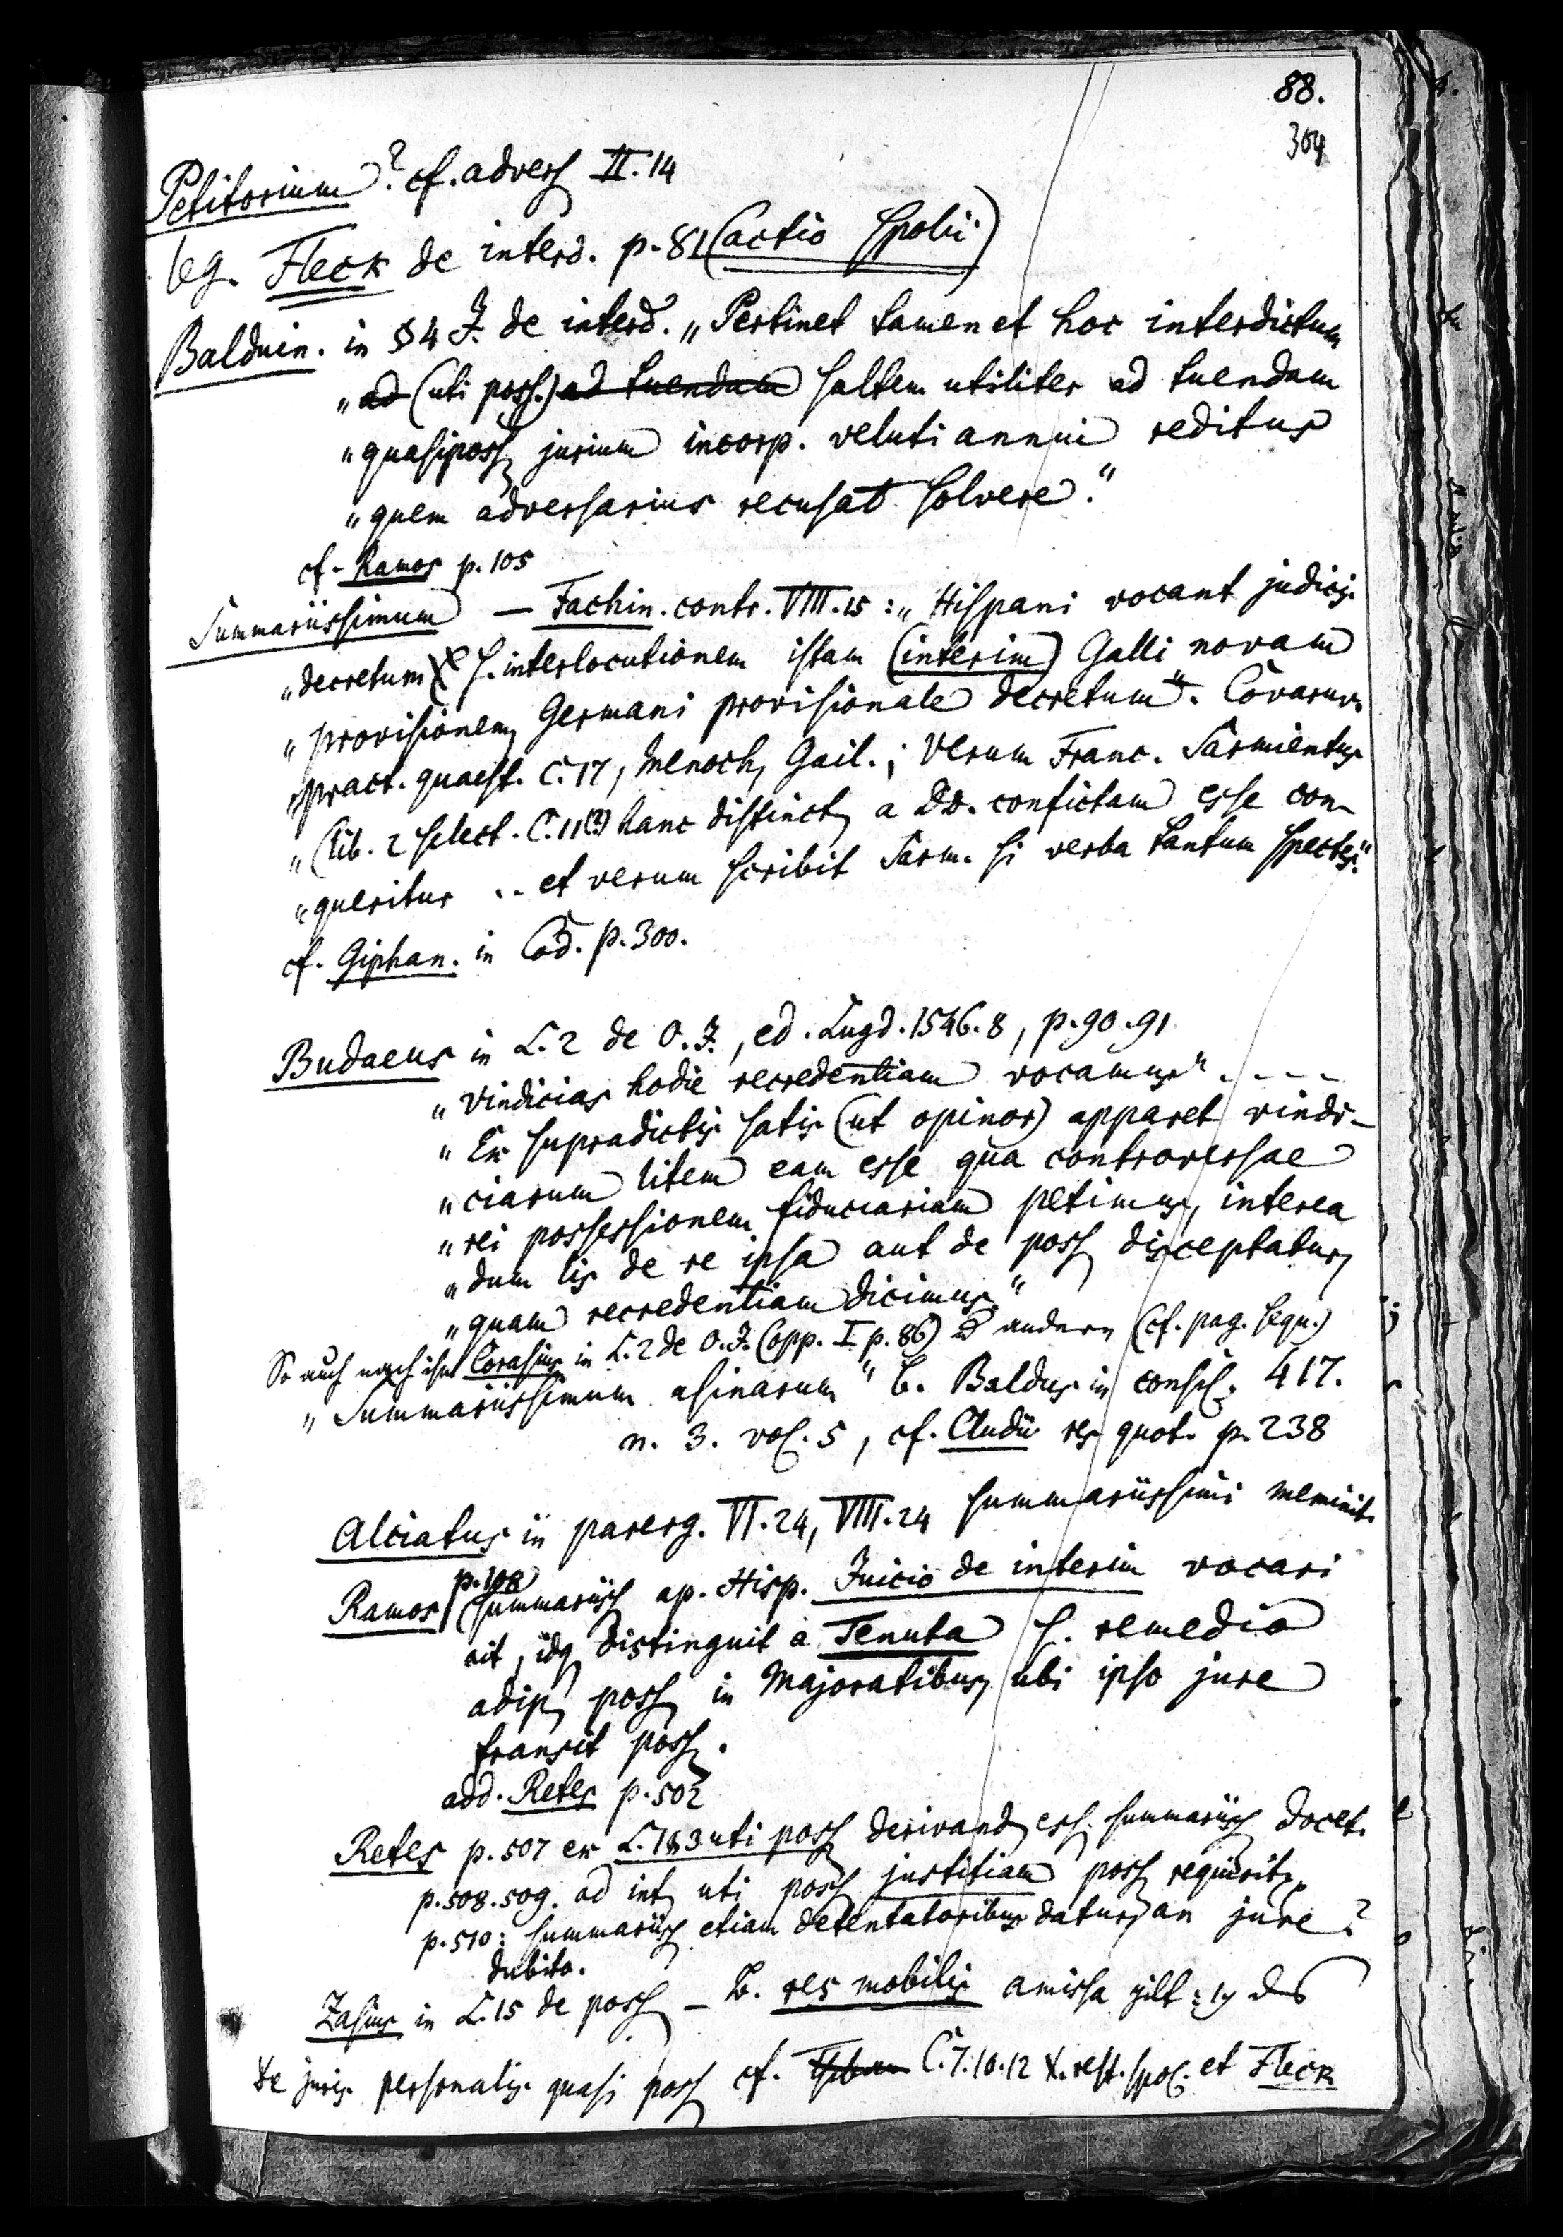 88.
304
Petitorium? cf. advers II. 14
leg. Fleck de interd. p. 81 (actio spolii)
Balduin. in § 4 J. de interd. „Pertinet tamen et hoc interdictum
„ad (uti poss.) ad tuendam saltem utiliter ad tuendam
„quasiposs jurium incorp. veluti annui reditus
„quem adversarius recusat solvere."
cf. Ramos p. 105
Summariissimum — Fachin. contr. VIII. 15: „Hispani vocant judicij
„decretum s. interlocutionem istam (interim) Galli novam
„provisionem Germani provisionale decretum". Covaruv.
„pract. quaest. C. 17, Menoch, Gail.; Verum Franc. Sarmientus
„(lib. 2 select. C. 11(?) hanc distinct a DD. confictam esse con-
„queritur .. et verum scribit Sarm. si verba tantum spectes."
cf. Giphan. in Cod. p. 300.
Budaeus in L. 2 de O. J., ed. Lugd. 1546. 8, p. 90. 91
„vindicias hodie recredentiam vocamus" - - - -
„Ex supradictis satis (ut opinor) apparet vindi-
„ciarum litem eam esse qua controversae
„rei possessionem fiduciariam petimus, interea
„dum lis de re ipsa aut de poss disceptatur,
„quam recredentiam dicimus."
So auch nach ihm Corasius in L. 2 de O. J. (opp. I. p. 86) andern (cf. pag. sequ.)
„Summariissimum asinarum" b. Baldus in consil. 417.
n. 3. vol. 5, cf. Claudii res quot. p. 238
Alciatus in parerg. VI. 24, VIII. 24 summariissimi meminit.
p. 100
Ramos summariiss ap. Hisp. Juicio de interim vocari
ait, idq distinguit a Tenuta s. remedio
adip poss in Majoratibus, ubi ipso jure
transit poss.
add. Retes p. 502
Retes p. 507 ex L. 1 § 3 uti poss derivand esse summariiss docet.
p. 508. 509. ad int uti poss justitiam poss requirit
p. 510: summariiss etiam detentatoribus datur, an jure?
dubito.
Zasius in L. 15 de poss — b. res mobilis amissa gilt
de juris personalis quasi poss cf. C. 7. 10. 12 X. rest. spol. et Fleck